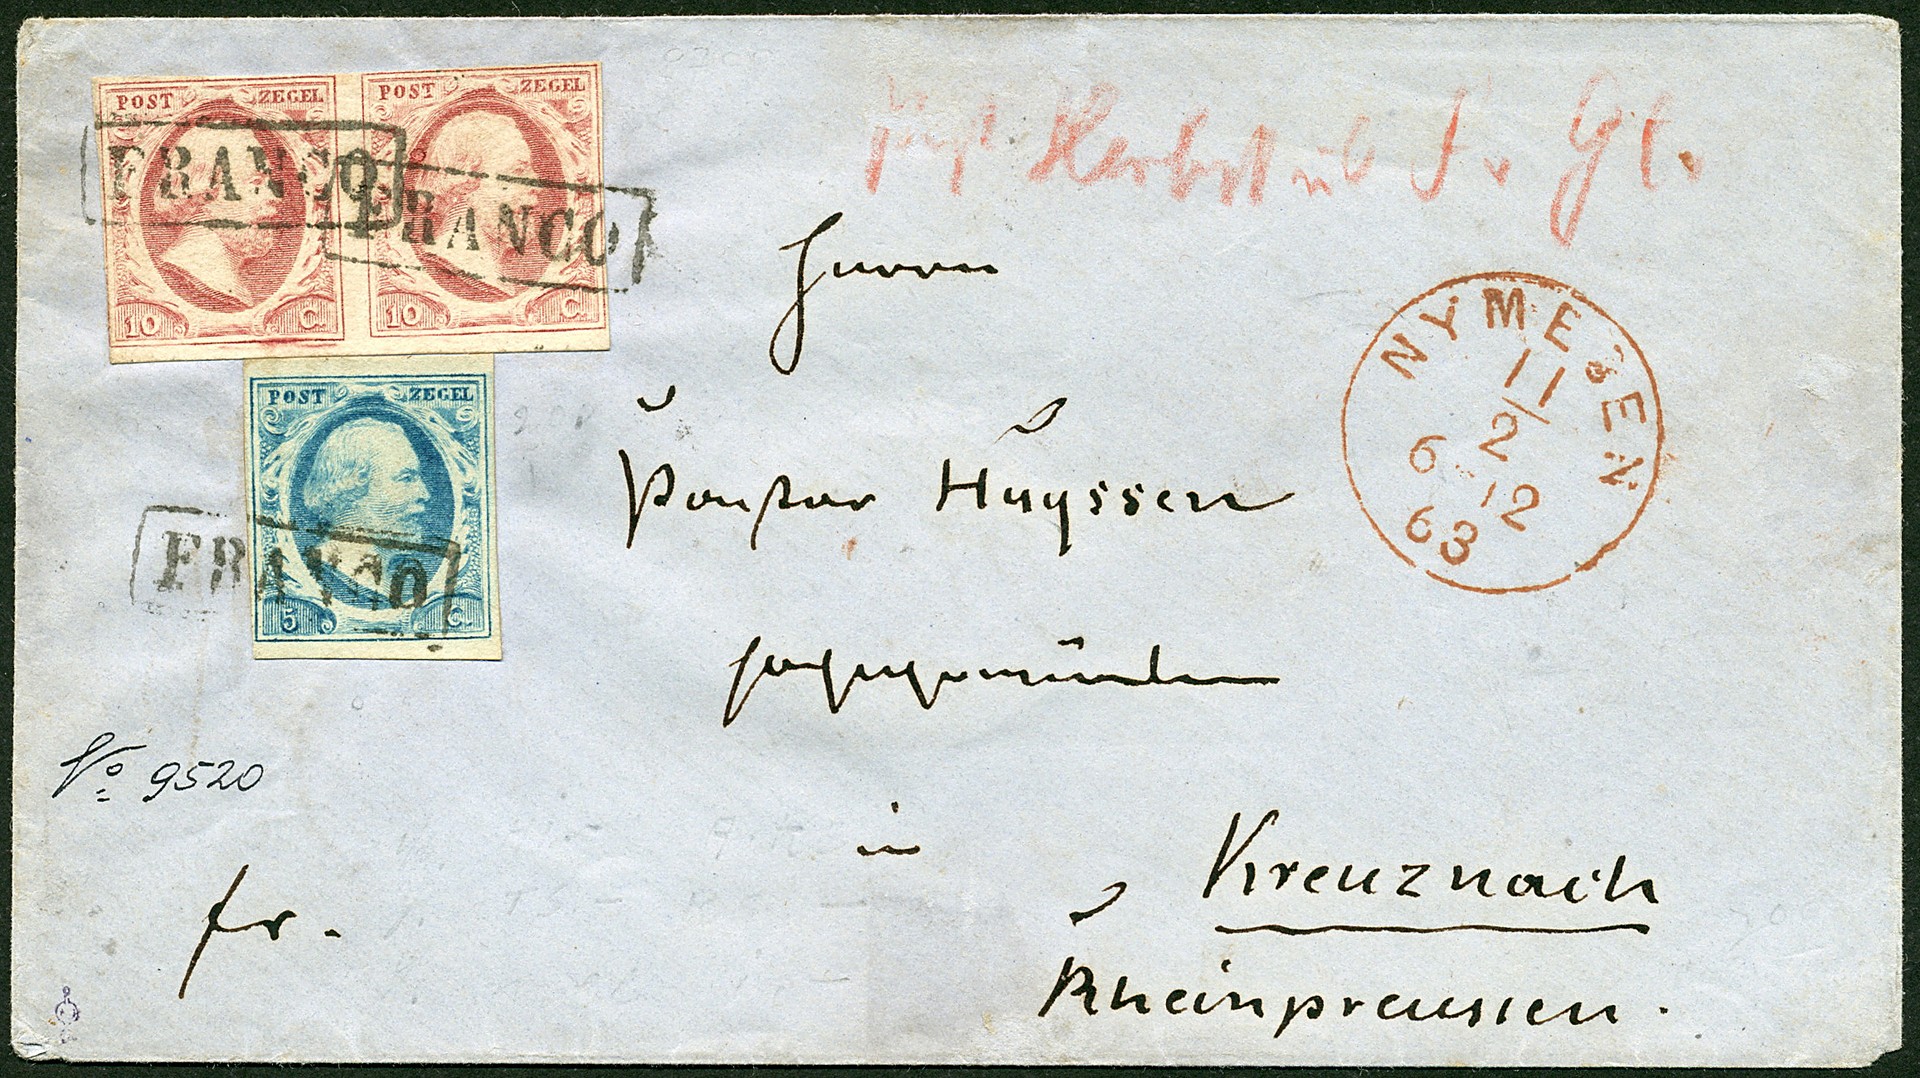 POST ZEGEL
10 C.
POST ZEGEL
10 C.
FRANCO
FRANCO
POST ZEGEL
5 C.
FRANCO
Herbst
NYMEGEN
11
2
6 12
63
Herrn
Pastor Huyssen
in
Kreuznach
Rheinpreussen.
No 9520
fr.